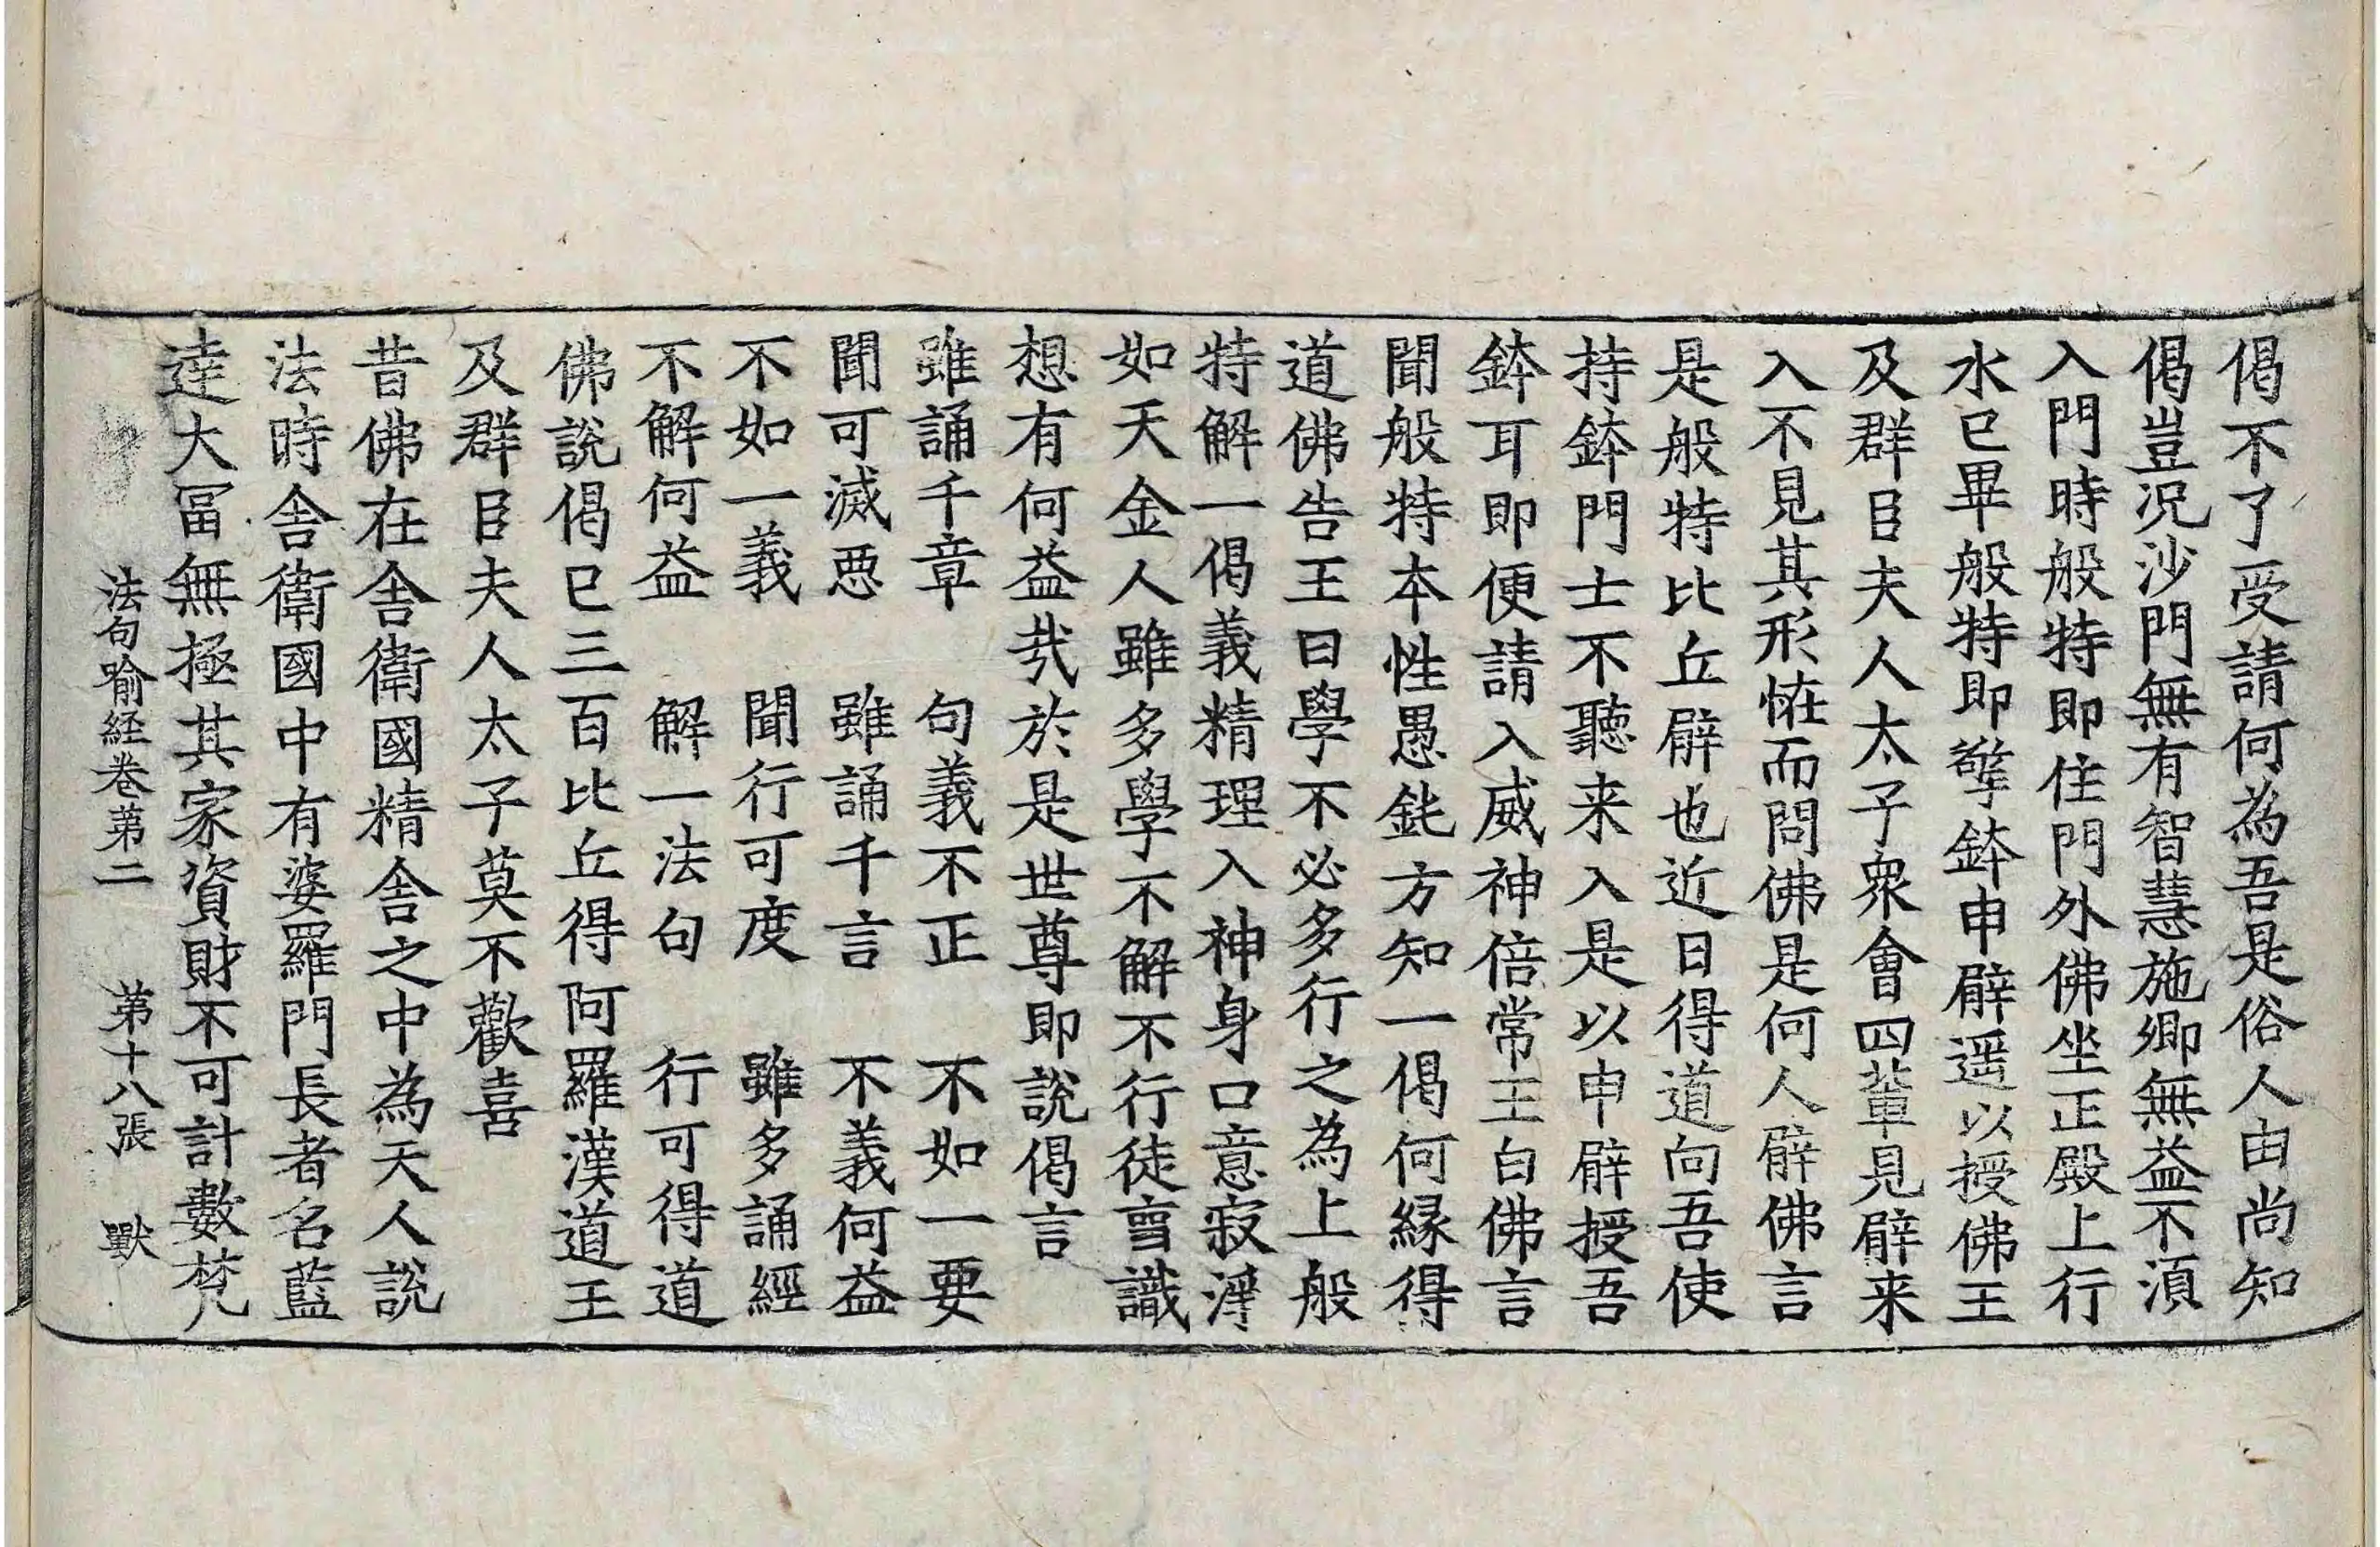 偈不了受請何為吾是俗人由尚知
偈豈况沙門無有智慧施卿無益不湏
入門時般特即住門外佛坐正殿上行
水已畢般特即擎鉢申臂遥以授佛王
及群臣夫人太子衆會四輩見臂来
入不見其形恠而問佛是何人臂佛言
是般特比丘臂也近日得道向吾使
持鉢門士不聽来入是以申臂授吾
鉢耳即便請入威神倍常王白佛言
聞般特本性愚鈍方知一偈何緣得
道佛告王曰學不必多行之為上般
特解一偈義精理入神身口意寂淨
如天金人雖多學不解不行徒喪識
想有何益哉於是世尊即說偈言
雖誦千章　句義不正　不如一要
聞可滅惡　雖誦千言　不義何益
不如一義　聞行可度　雖多誦經
不解何益　解一法句　行可得道
佛說偈已三百比丘得阿羅漢道王
及群臣夫人太子莫不歡喜
昔佛在舍衛國精舍之中為天人說
法時舍衛國中有婆羅門長者名藍
達大冨無極其家資財不可計數梵
法句喻経卷第二　第十八張　獸